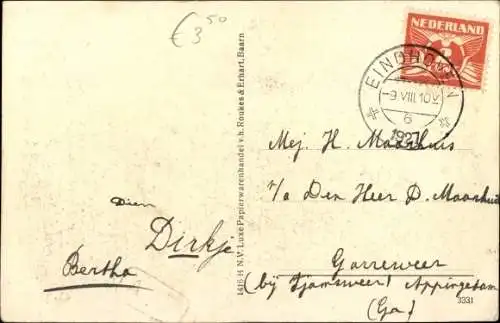 € 3 50
NEDERLAND
EINDHOVEN
-9.VIII.10V
6
1927
Mej. H. Maarhuis
p/a Den Heer D. Maarhuis
Garreweer
(bij Tjamsweer) Appingedam
(Gr.)
Dien
Dirkje
Bertha
1416 H N.V. Luxe Papierwarenhandel v.h. Roukes & Erhart, Baarn
3331